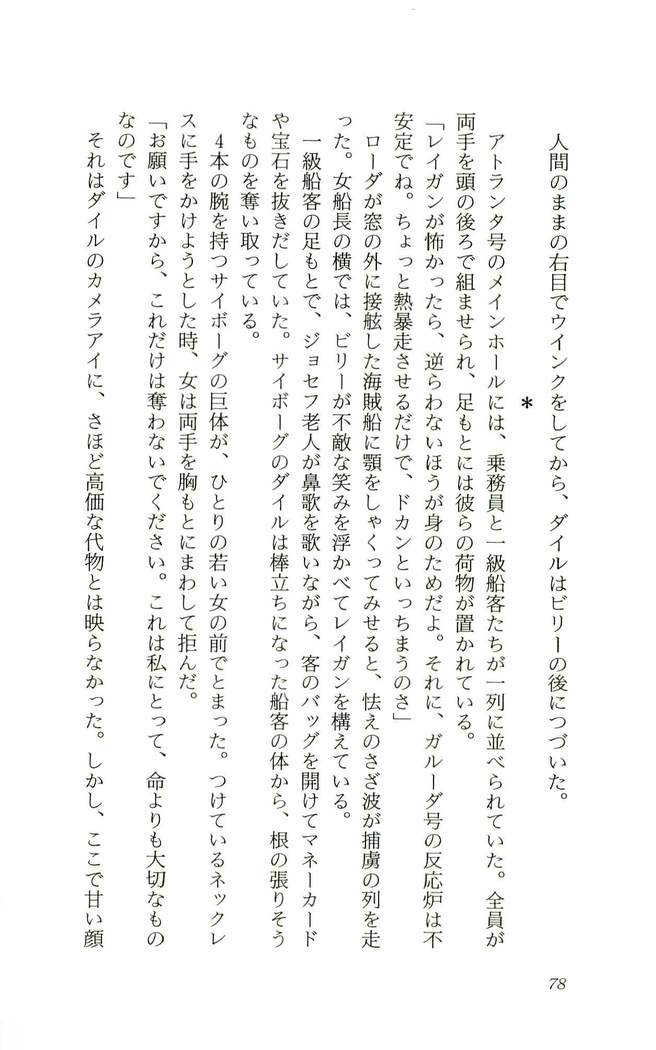 人間のままの右目でウインクをしてから、ダイルはビリーの後につづいた。
*
アトランタ号のメインホールには、乗務員と一級船客たちが一列に並べられていた。全員が
両手を頭の後ろで組ませられ、足もとには彼らの荷物が置かれている。
「レイガンが怖かったら、逆らわないほうが身のためだよ。それに、ガルーダ号の反応炉は不
安定でね。ちょっと熱暴走させるだけで、ドカンといっちまうのさ」
ローダが窓の外に接舷した海賊船に顎をしゃくってみせると、怯えのさざ波が捕虜の列を走
った。女船長の横では、ビリーが不敵な笑みを浮かべてレイガンを構えている。
一級船客の足もとで、ジョセフ老人が鼻歌を歌いながら、客のバッグを開けてマネーカード
や宝石を抜きだしていた。サイボーグのダイルは棒立ちになった船客の体から、根の張りそう
なものを奪い取っている。
4本の腕を持つサイボーグの巨体が、ひとりの若い女の前でとまった。つけているネックレ
スに手をかけようとした時、女は両手を胸もとにまわして拒んだ。
「お願いですから、これだけは奪わないでください。これは私にとって、命よりも大切なもの
なのです」
それはダイルのカメラアイに、さほど高価な代物とは映らなかった。しかし、ここで甘い顔
78